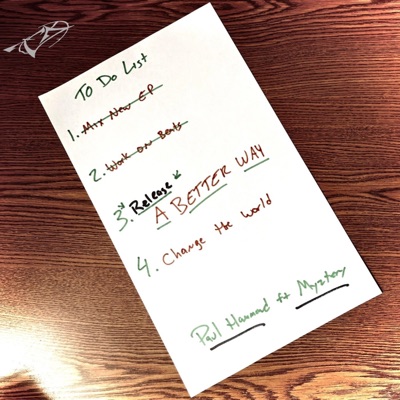 To Do List
1. Mix New EP
2. Work on Beats
3. Release
A BETTER WAY
4. Change the World
Paul Hammond ft Myztery